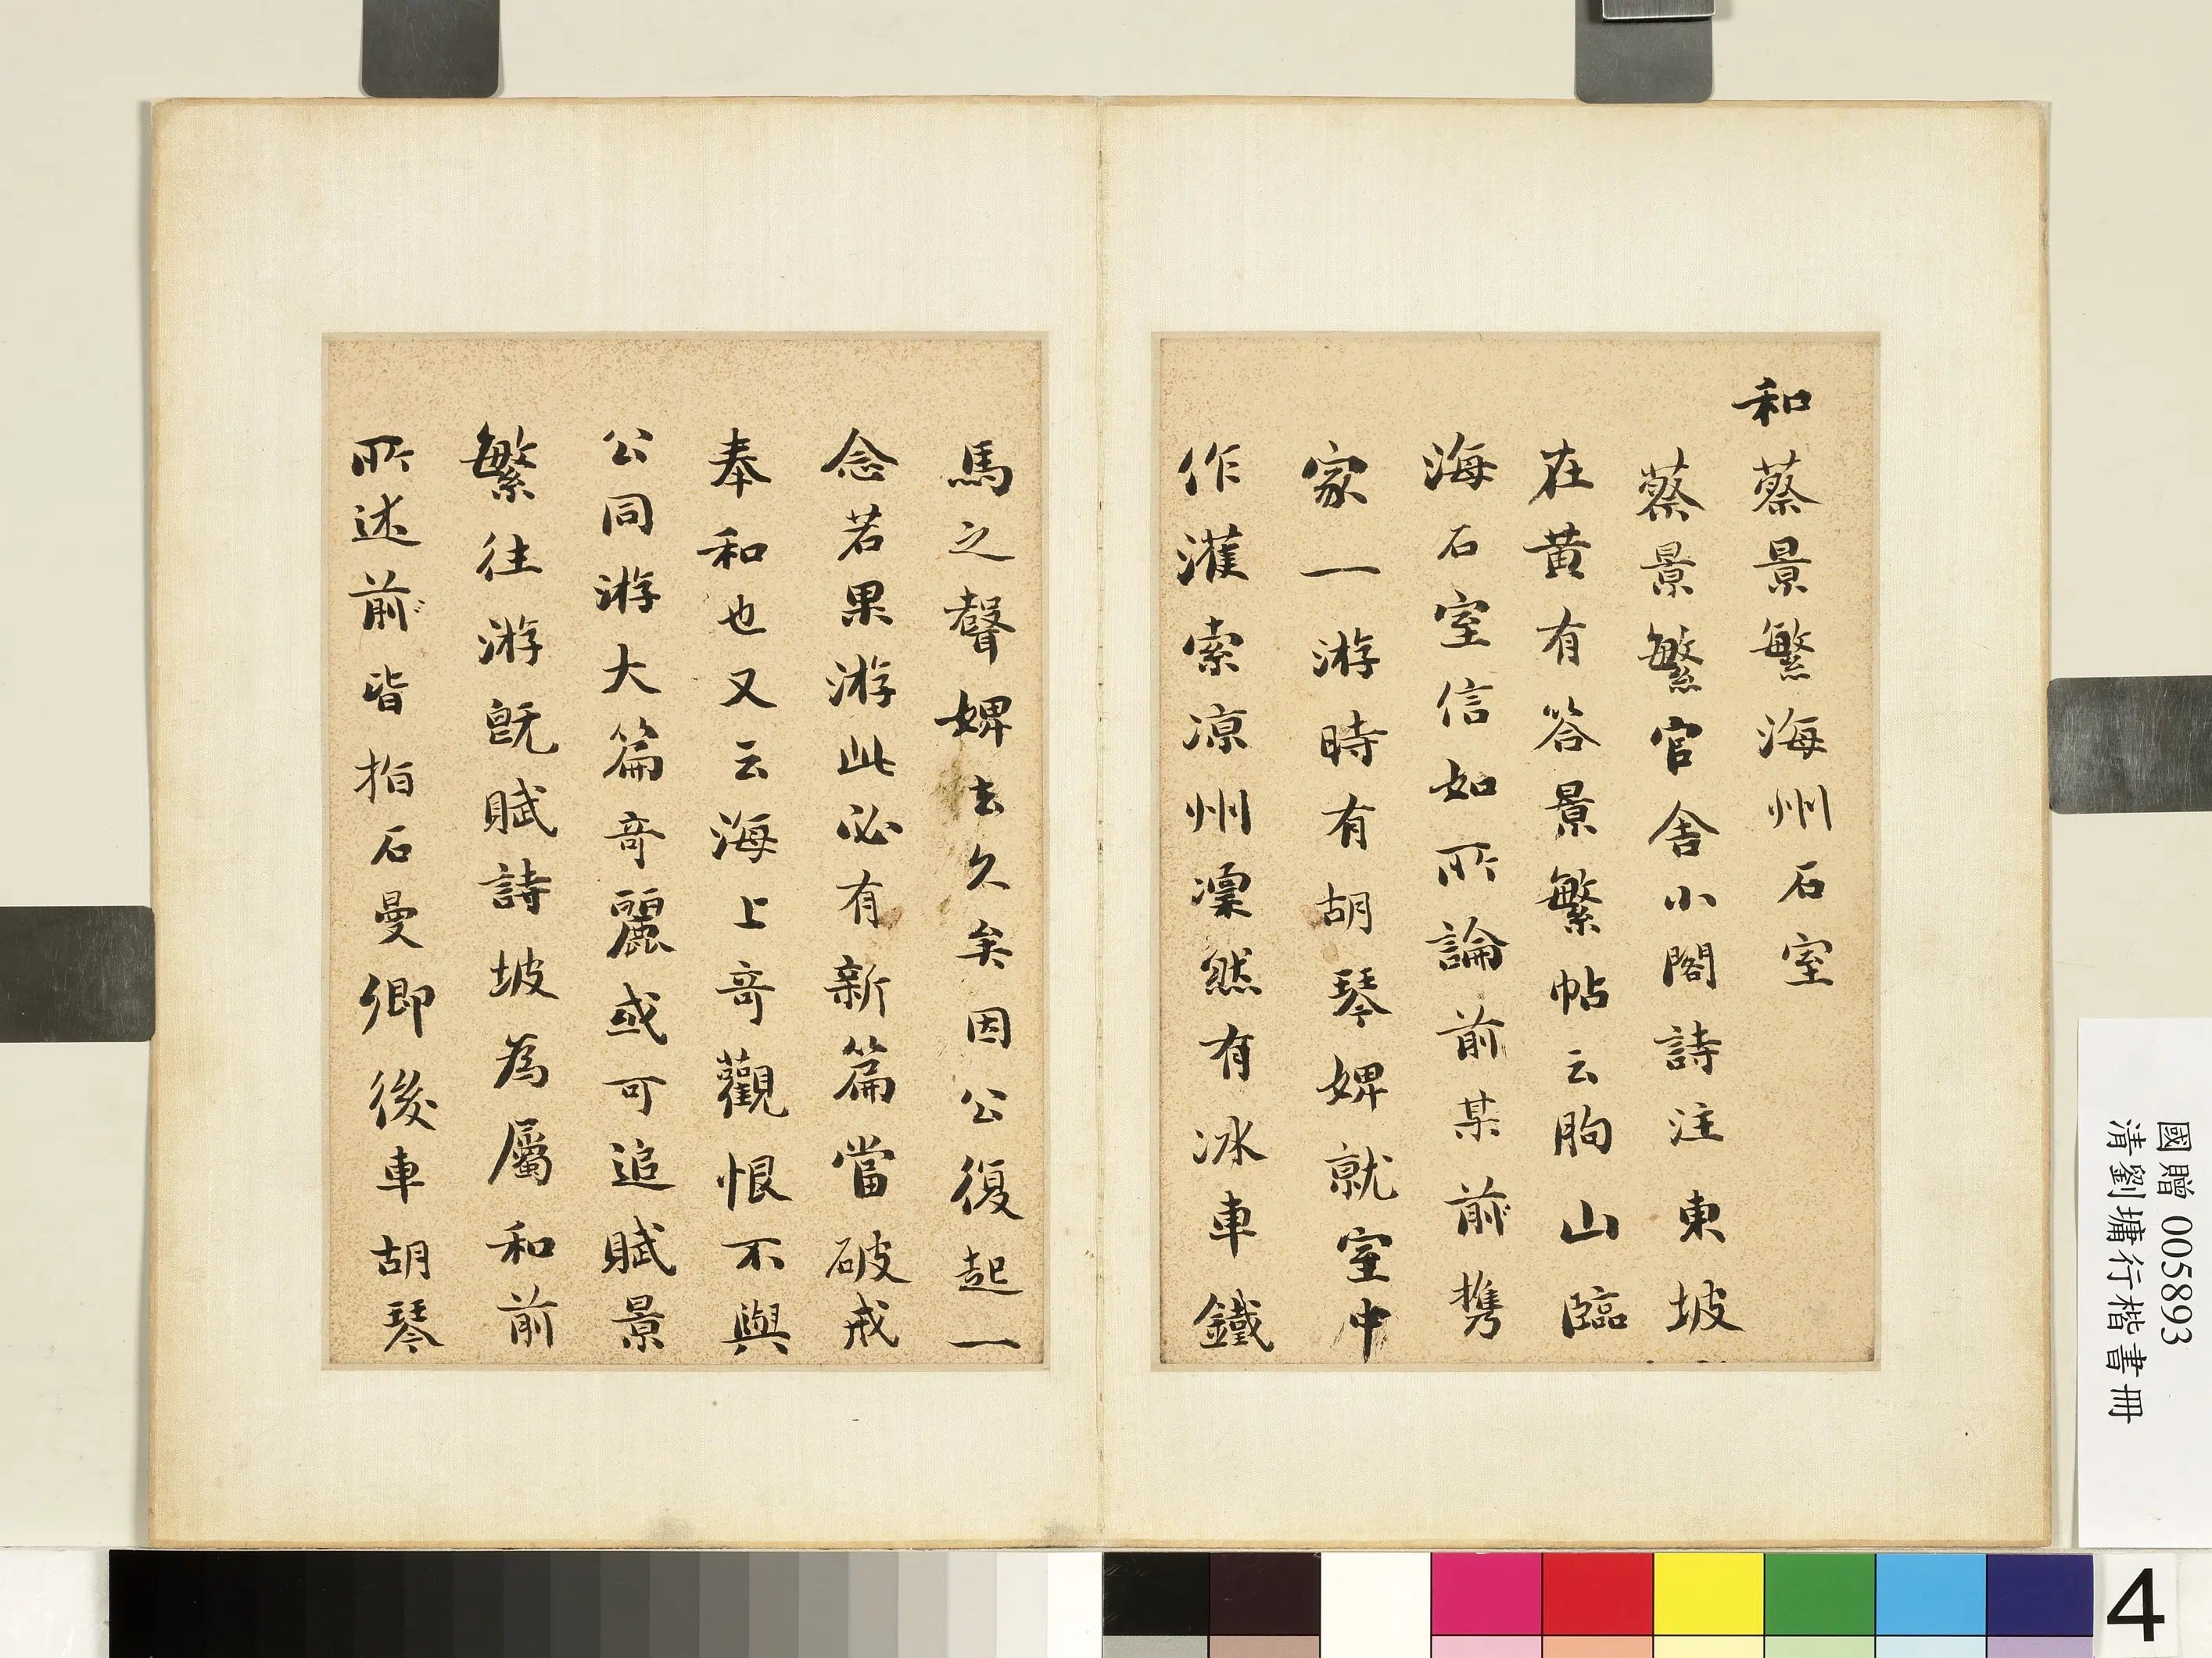 和蔡景繁海州石室
蔡景繁官舍小閣詩注東坡
在黃有答景繁帖云朐山臨
海石室信如所論前某前攜
家一游時有胡琴婢就室中
作濩索涼州凜然有冰車鐵
馬之聲婢去久矣因公復起一
念若果游此必有新篇當破戒
奉和也又云海上奇觀恨不與
公同游大篇奇麗或可追賦景
繁往游既賦詩坡為屬和前
所述前皆指石曼卿後車胡琴
國贈 005893
清劉墉行楷書冊
4